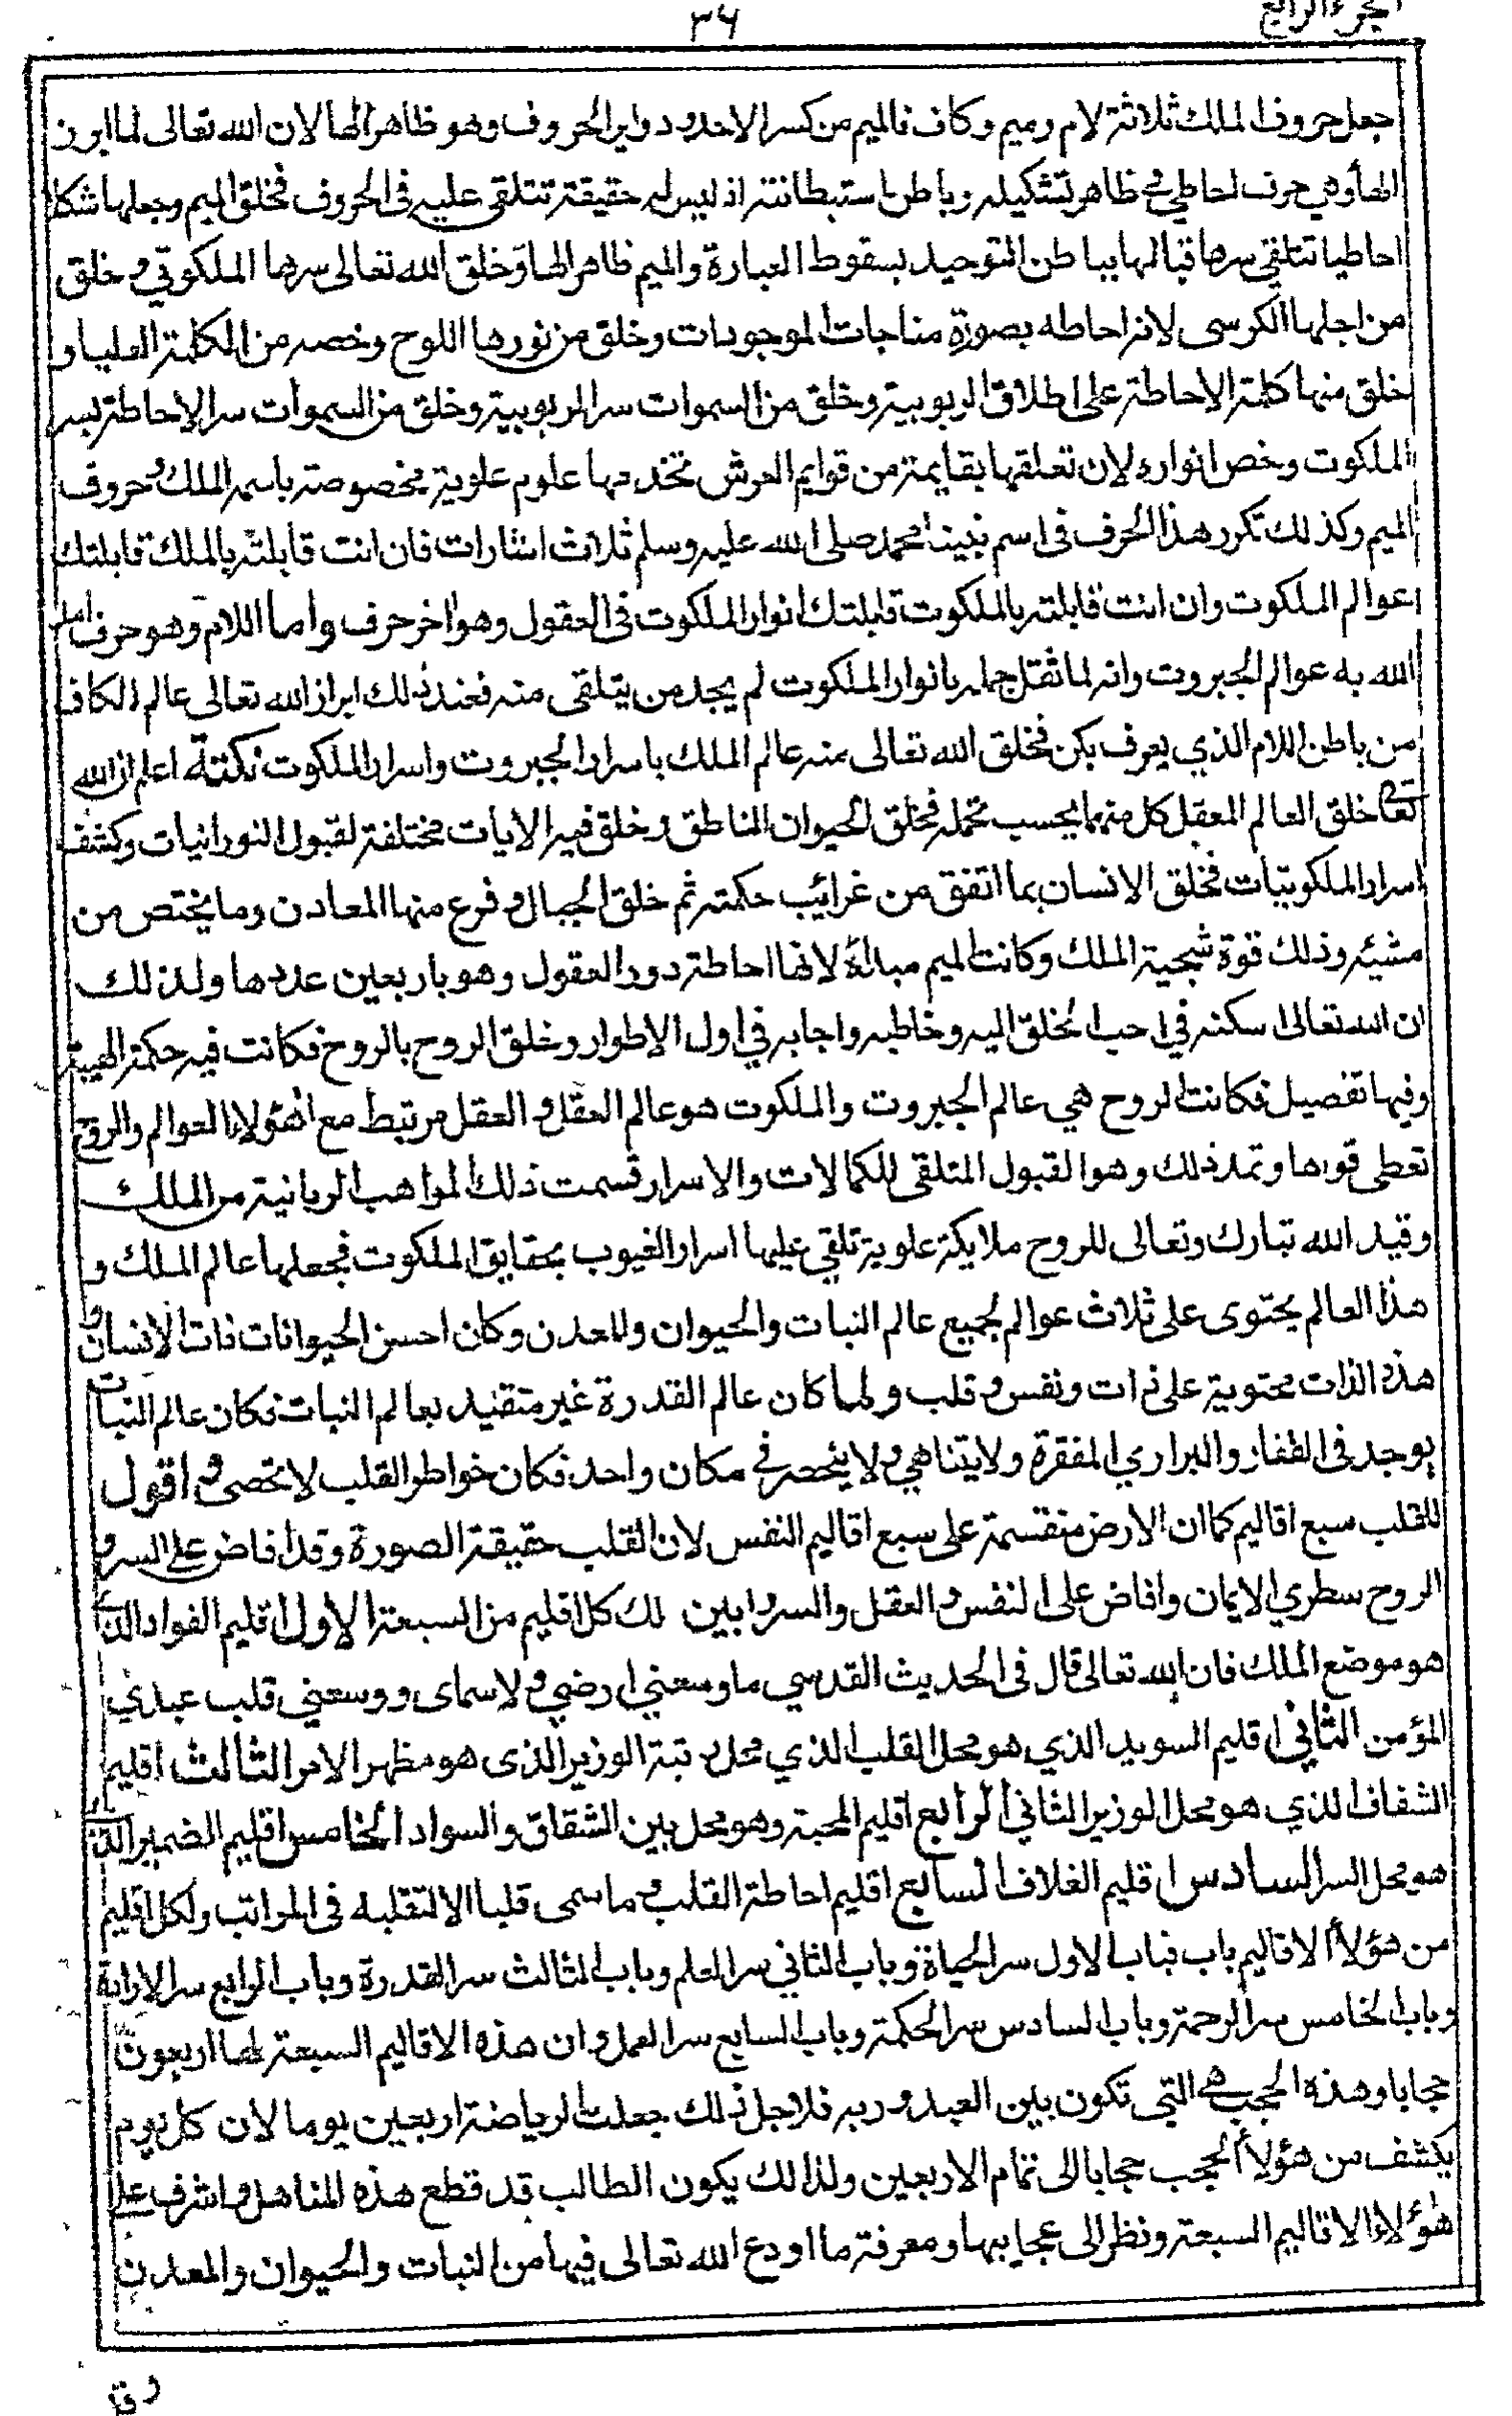 الجزء الرابع
٣٦
جعل حروف الملك ثلاثة لام وميم وكاف فالميم من كسر الاحدود دواير الحروف وهو ظاهر الها لان الله تعالى لما ابرز
الهاء وهي حرف احاطي في ظاهر تشكيله وباطن استبطانته اذ ليس له حقيقة تتلقى عليه في الحروف فخلق الميم وجعلها شكلا
احاطيا تتلقى سرها قبالها بباطن التوحيد بسقوط العبارة والميم ظاهر الها وخلق الله تعالى سرها الملكوتي وخلق
من اجلها الكرسي لانه احاطه بصورة مناجات الموجودات وخلق من نورها اللوح وخصه من الكلمة العليا و
خلق منها كلمة الاحاطة على اطلاق الربوبية وخلق من السموات سر الربوبية وخلق من السموات سر الاحاطة بسر
الملكوت وخص انواره لان تعلقها بقايمة من قوايم العرش تخدمها علوم علوية مخصوصة باسمه الملك وحروف
الميم وكذلك تكرر هذا الحرف في اسم نبينا محمد صلى الله عليه وسلم ثلاث اشارات فان انت قابلته بالملك قابلتك
عوالم الملكوت وان انت قابلته بالملكوت قابلتك انوار الملكوت في العقول وهو اخر حرف واما اللام وهو حرف
الله به عوالم الجبروت وانه لما ثقل حمله بانوار الملكوت لم يجد من يتلقى منه فعند ذلك ابرز الله تعالى عالم الكاف
من باطن اللام الذي يعرف بكن فخلق الله تعالى منه عالم الملك باسرار الجبروت واسرار الملكوت نكتة اعلم ان الله
تعالى خلق العالم المعقل كل منهما بحسب تحمله فخلق الحيوان الناطق وخلق فيه الايات مختلفة لقبول النورانيات وكشف
اسرار الملكوتيات فخلق الانسان بما اتفق من غرائب حكمته ثم خلق الجبال وفرع منها المعادن وما يختص من
مشيئه وذلك قوة شبحية الملك وكانت الميم مباله لانها احاطة دور العقول وهو باربعين عددها ولذلك
ان الله تعالى اسكنه في احب الخلق اليه وخاطبه واجابه في اول الاطوار وخلق الروح بالروح فكانت فيه حكمة الهيبة
وفيها تفصيل فكانت الروح هي عالم الجبروت والملكوت هو عالم العقل والعقل مرتبط مع هؤلاء العوالم والروح
تعطي قوبها وتمد ذلك وهو القبول المتلقي للكمالات والاسرار قسمت ذلك المواهب الربانية من الملك
وقيد الله تبارك وتعالى للروح ملايكة علوية تلقي عليها اسرار الغيوب بحقايق الملكوت فجعلها عالم الملك و
هذا العالم يحتوى على ثلاث عوالم لجميع عالم النبات والحيوان والمعدن وكان احسن الحيوانات ذات الانسان و
هذه الذات محتوية على ذات ونفس وقلب ولما كان عالم القدرة غير متقيد بعالم النبات فكان عالم النبات
يوجد في القفار والبراري المفقرة ولا يتناهى ولا ينحصر في مكان واحد فكان خواطر القلب لا تحصى واقول
للقلب سبع اقاليم كما ان الارض منقسمة على سبع اقاليم النفس لان القلب حقيقة الصورة وقد افاض على السر و
الروح سطري الايمان وافاض على النفس والعقل والسر وابين لك كل اقليم من السبعة الاول اقليم الفواد الذي
هو موضع الملك فان الله تعالى قال في الحديث القدسي ما وسعني ارضي ولا سماى ووسعني قلب عبدي
المؤمن الثاني اقليم السويد الذي هو محل القلب الذي محل رتبة الوزير الذى هو مظهر الامر الثالث اقليم
الشفاف الذي هو محل الوزير الثاني الرابع اقليم المحبة وهو محل بين الشقاق والسواد الخامس اقليم الضمير الذي
هو محل السر السادس اقليم الغلاف السابع اقليم احاطة القلب وما سمى قلبا الا لتقلبه في المراتب ولكل اقليم
من هؤلاء الاقاليم باب فباب الاول سر الحياة وباب الثاني سر العلم وباب الثالث سر القدرة وباب الرابع سر الارادة
وباب الخامس سر الرحمة وباب السادس سر الحكمة وباب السابع سر العمل وان هذه الاقاليم السبعة لها اربعون
حجابا وهذه الحجب هي التي تكون بين العبد وربه فلاجل ذلك جعلت الرياضة اربعين يوما لان كل يوم
يكشف من هؤلاء الحجب حجابا الى تمام الاربعين ولذالك يكون الطالب قد قطع هذه المناهل واشرف على
هؤلاء الاقاليم السبعة ونظر الى عجايبها ومعرفة ما اودع الله تعالى فيها من النبات والحيوان والمعدن